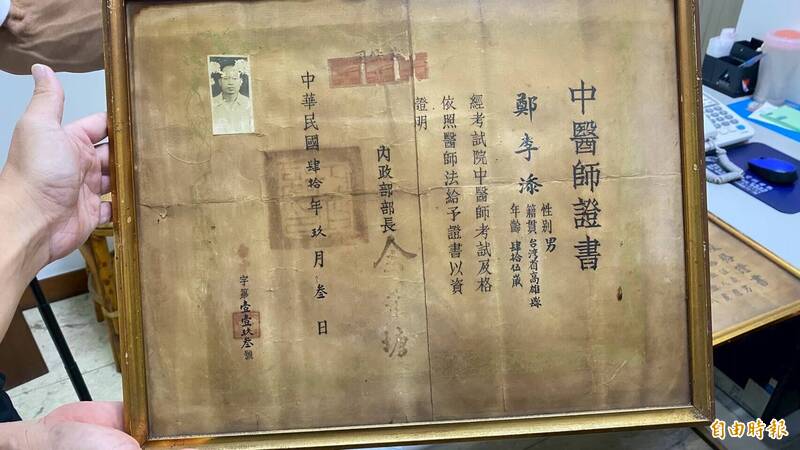 中醫師證書
鄭李添
性別男
籍貫台湾省高雄縣
年齡肆拾伍歲
經考試院中醫師考試及格
依照醫師法給予證書以資
證明
內政部部長
中華民國肆拾年玖月叁日
字第壹壹玖叁號
自由時報